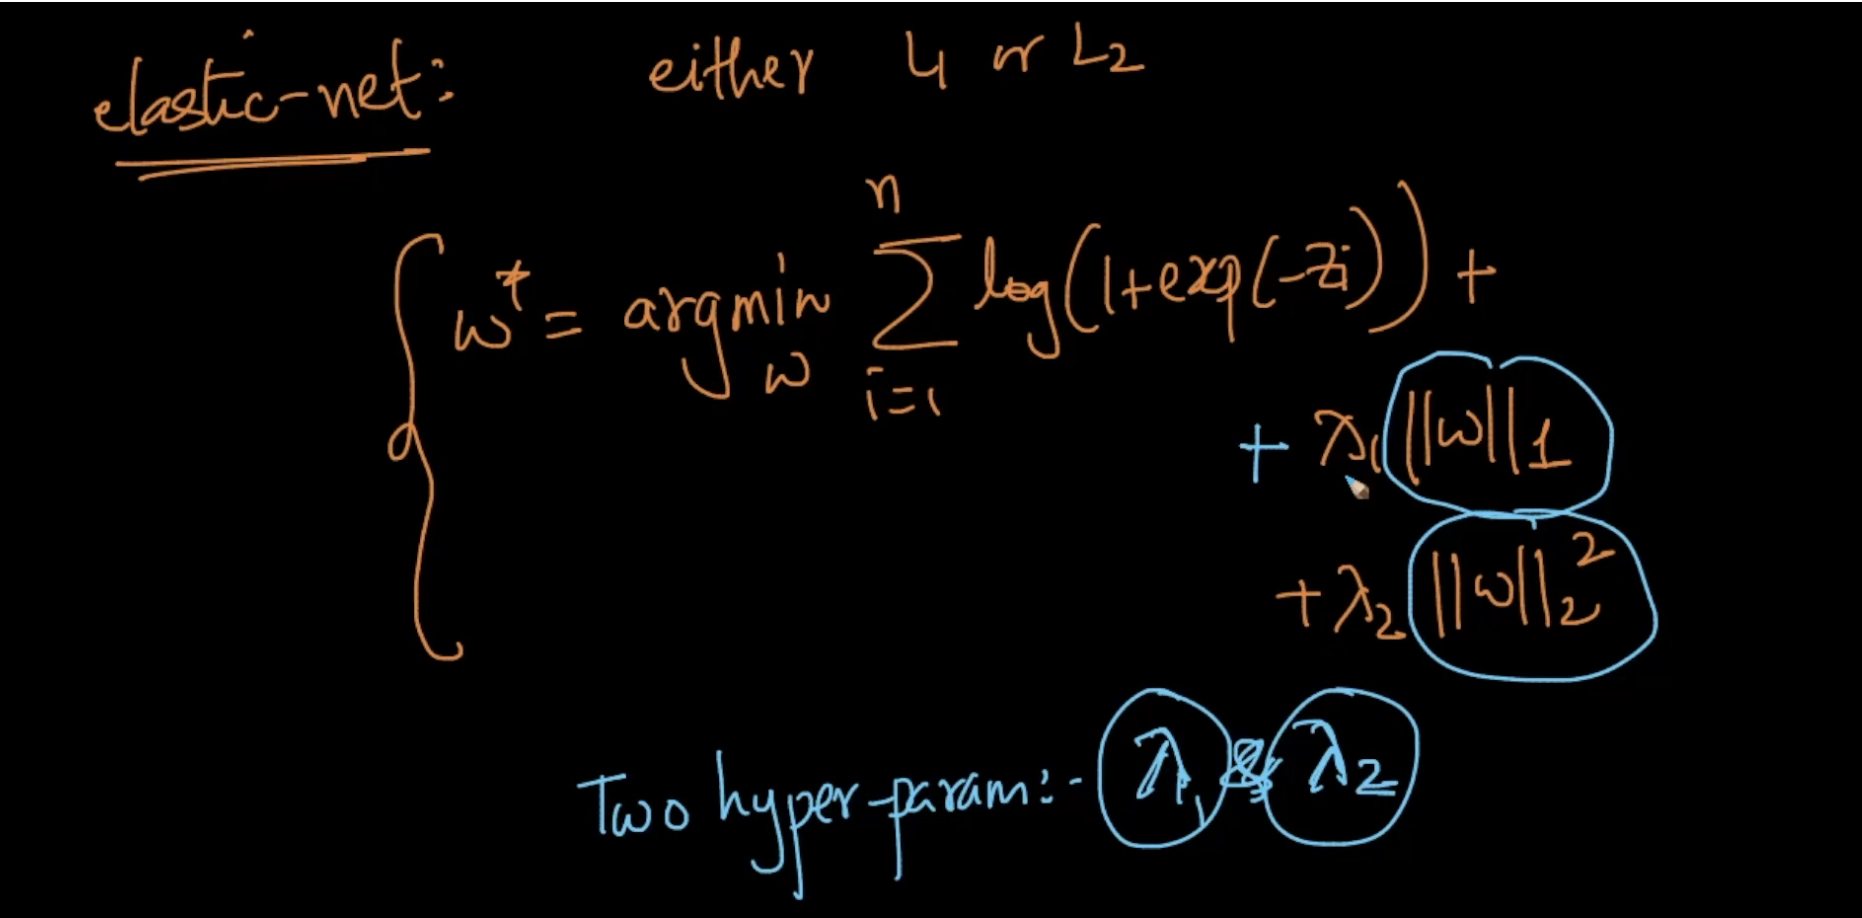 elastic-net: either L1 or L2
w* = argmin_w Σ_{i=1}^{n} log(1+exp(-zi)) +
+ λ1 ||w||_1
+ λ2 ||w||_2^2
Two hyper-param:- λ1 & λ2